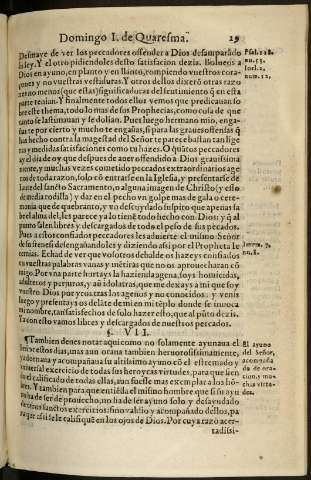 Domingo I. de Quaresma. 29
Desmaye de ver los peccadores offender a Dios desamparādo
su ley. Y el otro pidiendoles desto satisfacion dezia. Bolueos a
Dios en ayuno, en planto y en llanto, rompiendo vuestros cora-
çones y no vuestras vestiduras. Y otros dellos dixeron otras razo
nes no menos (que estas) significadoras del sentimiento q̄ en esta
parte tenian. Y finalmente todos ellos vemos que predicauan so
bre este thema, todo lo mas de sus Prophecias, como cosa de que
tanto se lastimauan y se dolian. Pues luego hermano mio, enga-
ñas te por cierto y mucho te engañas, si para las graues offensas q̄
has hecho contra la magestad del Señor te parece bastan tan lige
ras y medidas satisfaciones como tu hazes. O quātos peccadores
ay el dia de oy que despues de auer offendido a Dios grauissima
mente, y muchas vezes cometido peccados extraordinarios agē
tos de toda razon, solo cō entrarse en la Iglesia, y presentarse de
lante del sancto Sacramento, o alguna imagen de Christo (y esto
de media rodilla) y dar en el pecho vn golpe mas de gala o cere-
monia que de quebranto, y vn descuydado suspiro que apenas sa
be el alma del, les parece ya lo tienē todo hecho con Dios: y q̄ al
punto salen libres y descargados de todo el peso de sus pecados.
Pues a estos confiados pescadores les aduierte el mismo Señor
desengañandoles y diziendo assi por el Propheta Ie
remias. Echad de ver que vosotros de balde os hazeys confiados
en vuestras palabras vanas y mētiras que no os aprouecharan cō
migo. Por vna parte hurtays la hazienda agena, soys homicidas,
adulteros y perjuros, y aū idolatras, que me dexays a mi que soy
vuestro Dios por yros tras los agenos y no conocidos: y venis
luego y presentays os delāte de mi en mi tēplo donde se inuoca
mi nombre, tan satisfechos de solo hazer esto, que al pūto dezis.
Ya con esto vamos libres y descargados de nuestros pecados.
§. VII.
¶ Tambien denes notar aqui como no solamente ayunaua el
señor estos dias, mas aun oraua tambien heruorosissimamente,
y adornaua y acompañaua su altissimo ayuno cō el estremado y
vniuersal exercicio de todas sus heroycas virtudes, para que siē
do el calificado de todas ellas, aun fuesse mas exemplar a los hō-
bres. Y tambien para que entiēda el mismo hombre que si su ayu
no ha de ser de prouecho, no ha de ser ayuno solo y desayudado
de otros sanctos exercicios: sino valido y acompañado dellos, pa
ra que assi se le califique en los ojos de Dios. Por cuya razō acer-
tadissi-
Psal. 118.
nu. 53.
Ioel. 2.
num. 12.
Ierem. 7.
nu. 8.
El ayuno
del Señor,
acompaña
do de ora-
cion, y mu
chas virtu-
des.